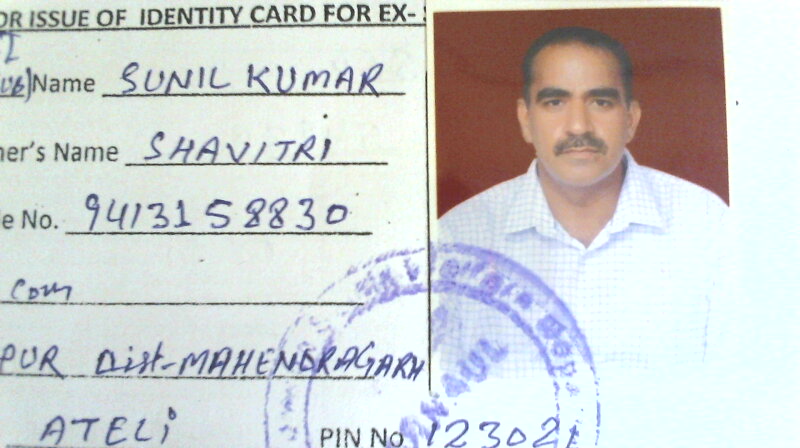 OR ISSUE OF IDENTITY CARD FOR EX-
Name SUNIL KUMAR
er's Name SHAVITRI
e No. 9413158830
Com
PUR Distt-MAHENDRAGARH
ATELi PIN No 123021